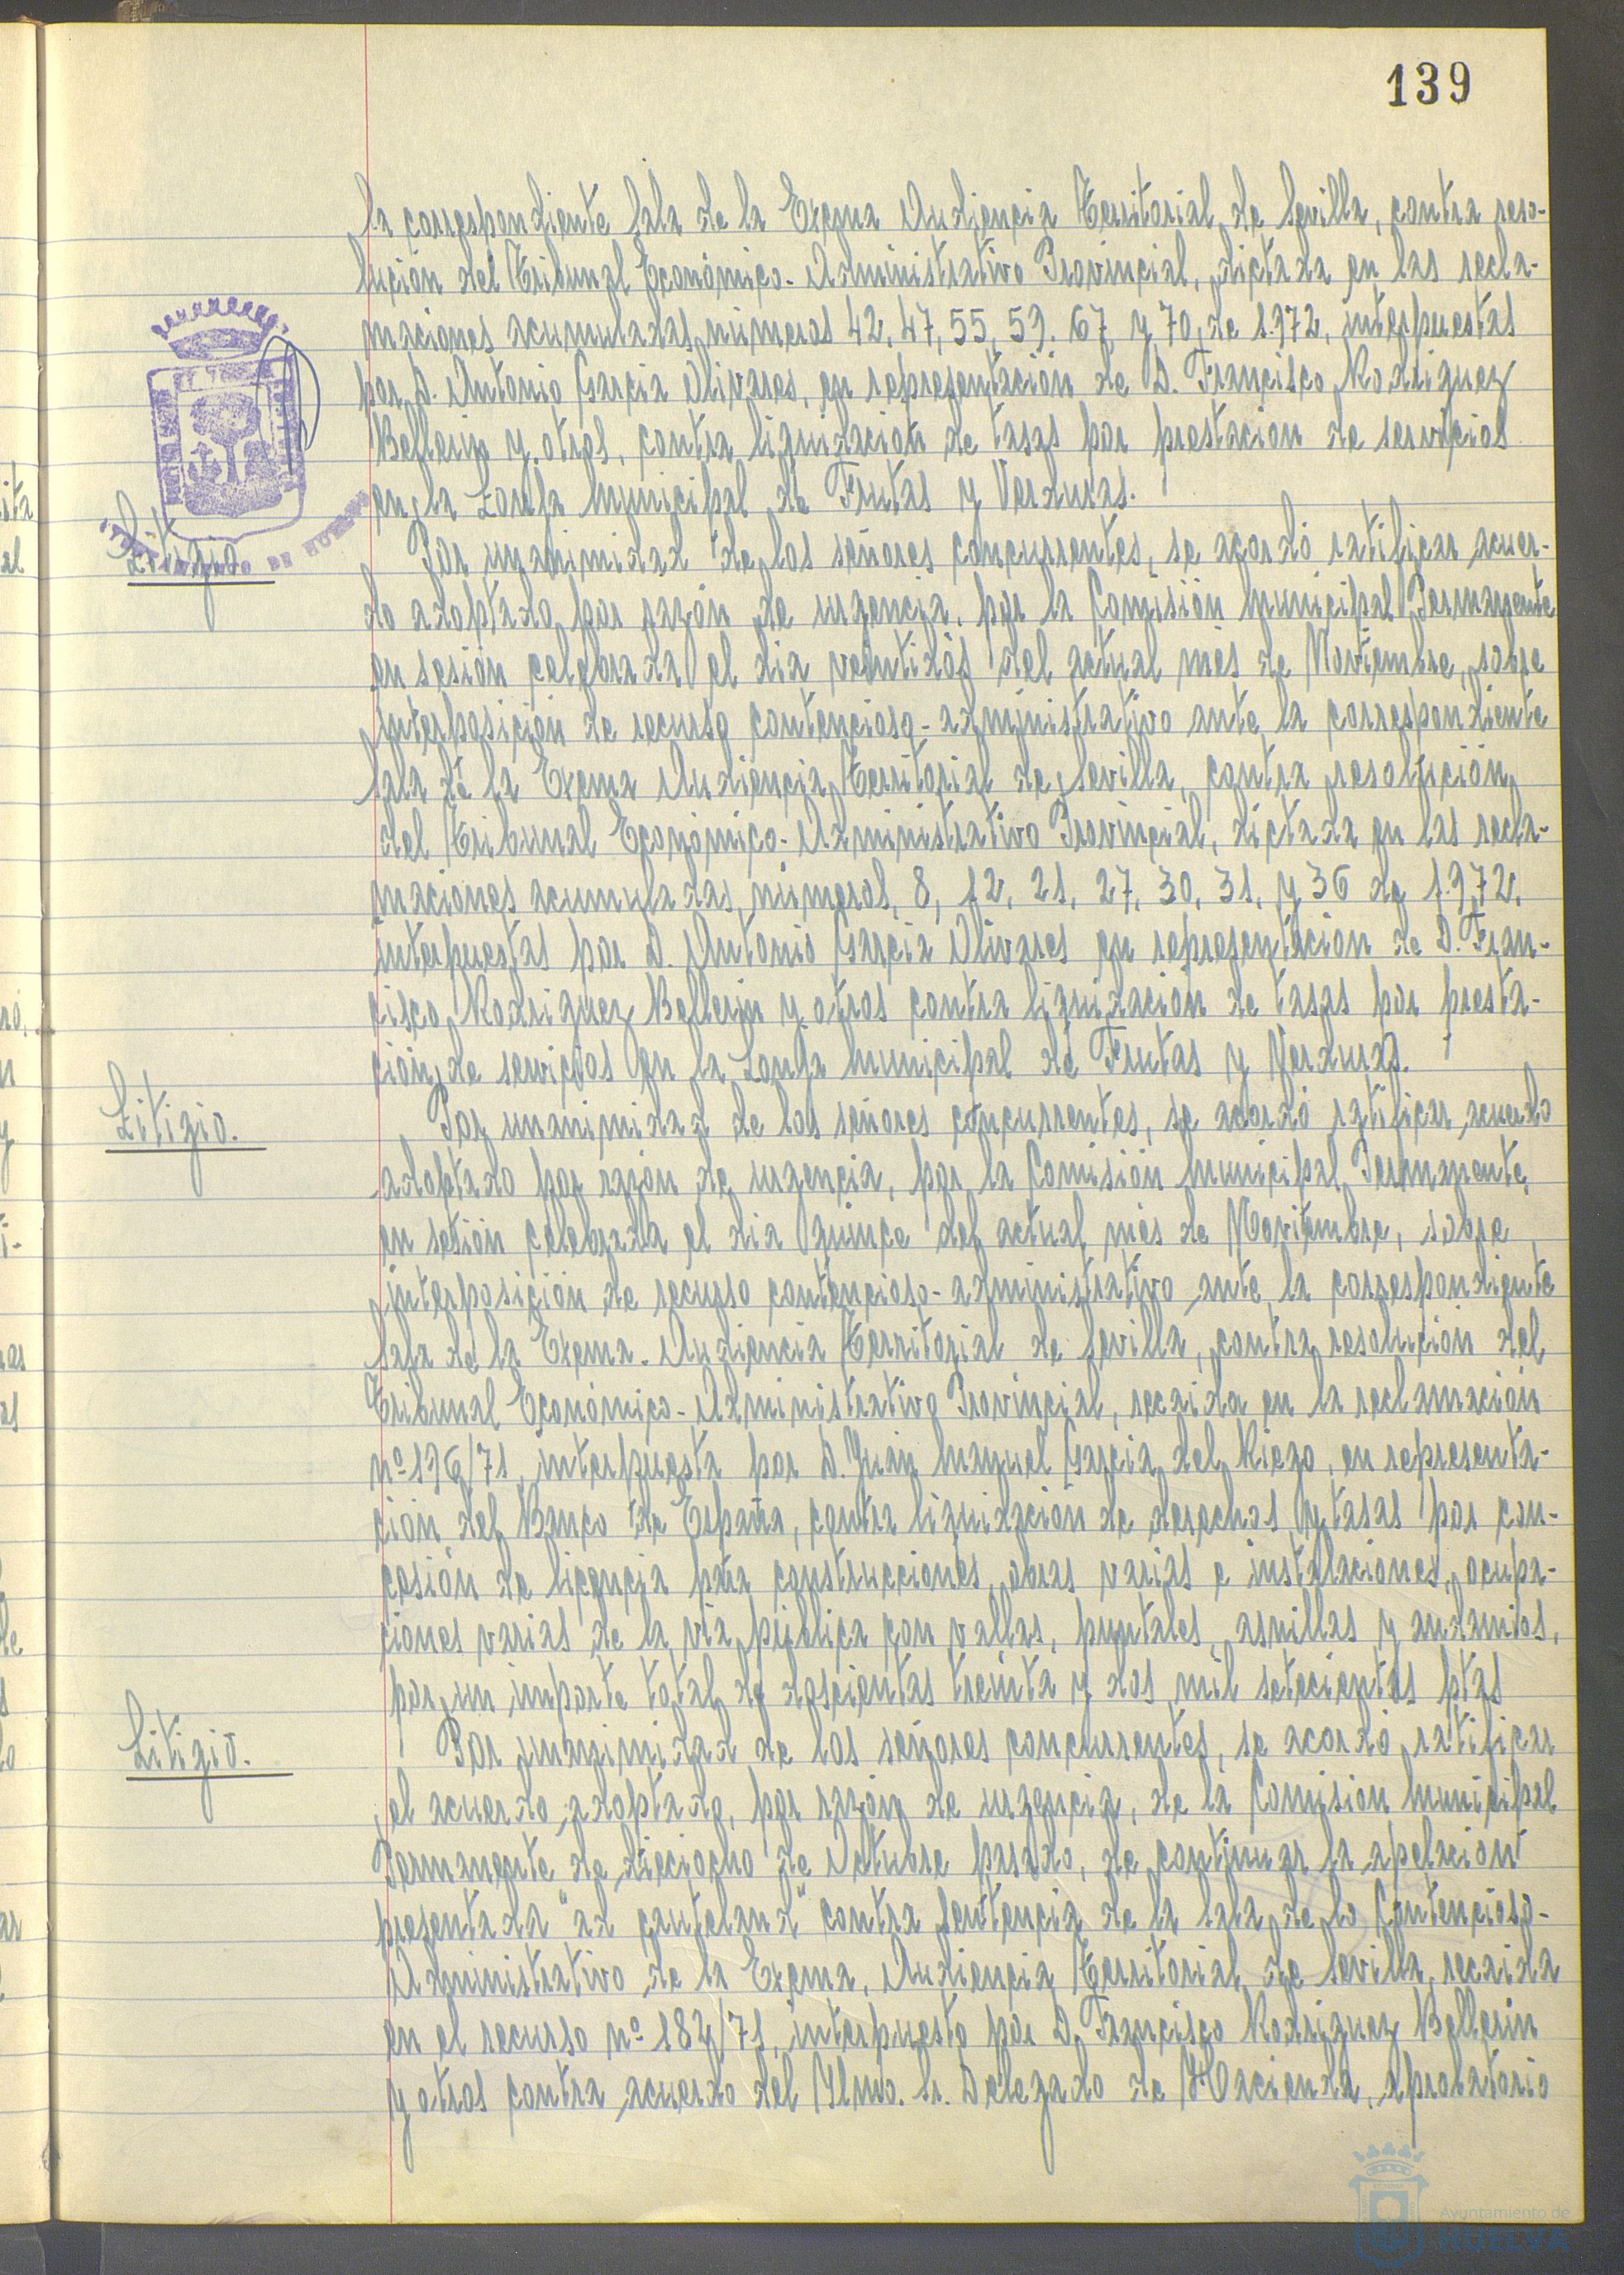 139
la correspondiente Sala de la Excma Audiencia Territorial de Sevilla, contra reso-
lución del Tribunal Económico-Administrativo Provincial, dictada en las recla-
maciones acumuladas, números 42, 47, 55, 59. 67 y 70, de 1.972, interpuestas
por D. Antonio García Olivares, en representación de D. Francisco Rodriguez
Bellerin y otros, contra liquidación de tasas por prestación de servicios
en la Lonja Municipal de Frutas y Verduras.
Litigio
Por unanimidad de los señores concurrentes, se acordó ratificar acuer-
do adoptado por razón de urgencia, por la Comisión Municipal Permanente
en sesión celebrada el dia veintidós del actual mes de Noviembre, sobre
interposición de recurso contencioso-administrativo ante la correspondiente
Sala de la Excma Audiencia Territorial de Sevilla, contra resolución
del Tribunal Económico-Administrativo Provincial, dictada en las recla-
maciones acumuladas, números, 8, 12, 21, 27, 30, 31, y 36 de 1.972,
interpuestas por D. Antonio García Olivares en representación de D. Fran-
cisco Rodriguez Bellerin y otros contra liquidación de tasas por presta-
ción de servicios en la Lonja Municipal de Frutas y Verduras.
Litigio.
Por unanimidad de los señores concurrentes, se acordó ratificar acuerdo
adoptado por razón de urgencia, por la Comisión Municipal Permanente,
en sesión celebrada el dia quince del actual mes de Noviembre, sobre
interposición de recurso contencioso-administrativo ante la correspondiente
Sala de la Excma. Audiencia Territorial de Sevilla, contra resolución del
Tribunal Económico-Administrativo Provincial, recaida en la reclamación
nº 196/71, interpuesta por D. Juan Manuel García del Riego, en representa-
ción del Banco de España, contra liquidación de derechos y tasas por con-
cesión de licencia para construcciones, obras varias e instalaciones, ocupa-
ciones varias de la via pública con vallas, puntales, asnillas y andamios,
por un importe total de doscientas treinta y dos mil setecientas ptas
Litigio.
Por unanimidad de los señores concurrentes, se acordó ratificar
el acuerdo adoptado, por razón de urgencia, de la Comisión Municipal
Permanente de dieciocho de Octubre pasado, de continuar la apelación
presentada "ad cauteland" contra sentencia de la Sala de lo Contencioso-
Administrativo de la Excma, Audiencia Territorial de Sevilla, recaida
en el recurso nº 182/71, interpuesto por D. Francisco Rodriguez Bellerin
y otros contra acuerdo del Ylmo. Sr. Delegado de Hacienda, aprobatorio
Ayuntamiento de
HUELVA